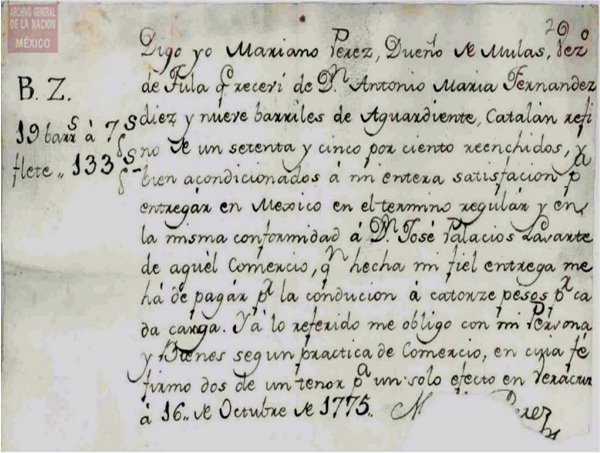 ARCHIVO GENERAL
DE LA NACIÓN
MÉXICO
Digo yo Mariano Perez, Dueño de Mulas, Vez.º
de Tula q.e receví de D.n Antonio Maria Fernandez
diez y nueve barriles de Aguardiente, Catalán refi
no de un setenta y cinco por ciento reenchidos, y
bien acondicionados á mi entera satisfacion p.a
entregár en Mexico en el termino regulár y en
la misma conformidad á D.n José Palacios Lasarte
de aquél Comercio, q.n hecha mi fiel entrega me
há de pagár p.r la condución á catorze pesos p.r ca
da carga. Yá lo referido me obligo con mi Persona
y Bienes segun practica de Comercio, en cuia fé
firmo dos de un tenor p.a un solo efecto en Veracruz
á 16,, de Octubre de 1775,,
Perez
B. Z.
19 barr.s á 7 $
flete,, 133 $